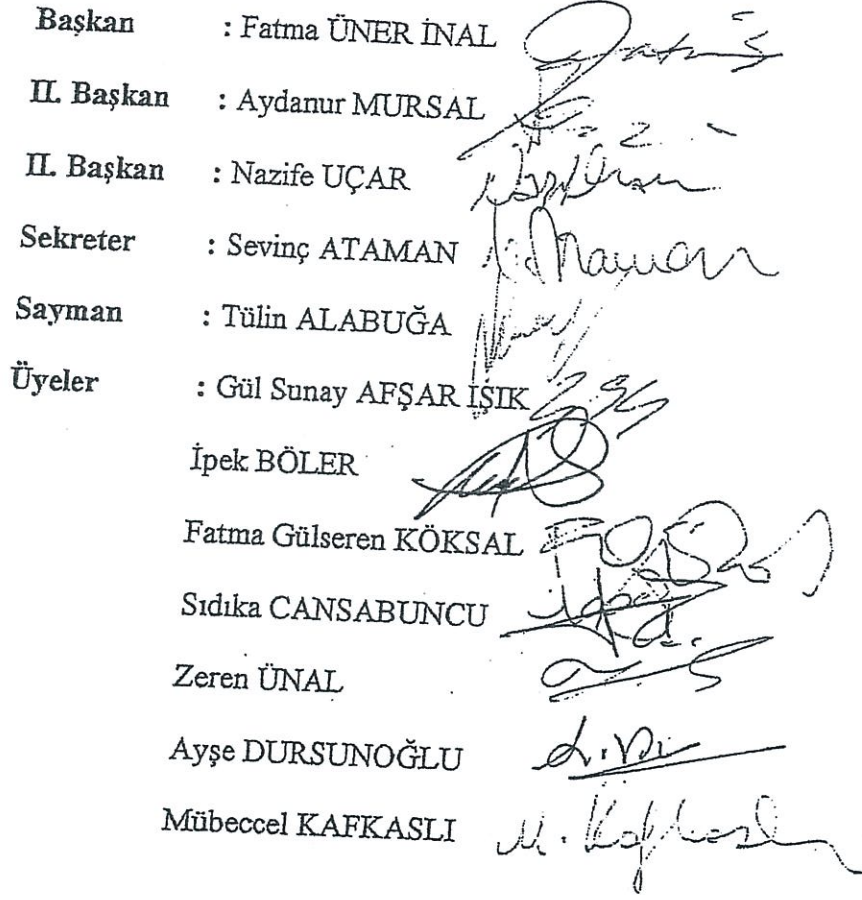 Başkan : Fatma ÜNER İNAL
II. Başkan : Aydanur MURSAL
II. Başkan : Nazife UÇAR
Sekreter : Sevinç ATAMAN
Sayman : Tülin ALABUĞA
Üyeler : Gül Sunay AFŞAR IŞIK
İpek BÖLER
Fatma Gülseren KÖKSAL
Sıdıka CANSABUNCU
Zeren ÜNAL
Ayşe DURSUNOĞLU
Mübeccel KAFKASLI M. Kafkaslı